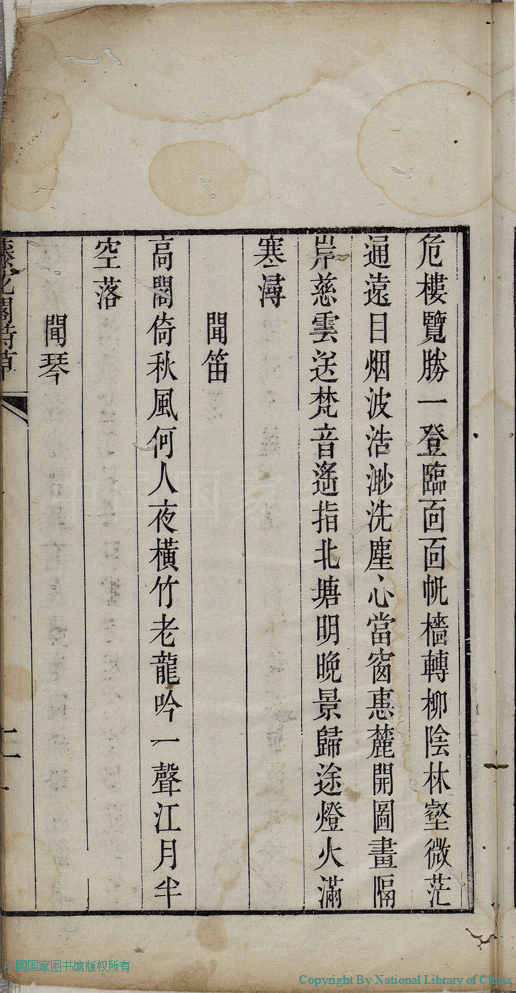 危樓覽勝一登臨面面帆檣轉柳陰林壑微茫
通遠目烟波浩渺洗塵心當窗惠麓開圖畫隔
岸慈雲送梵音遙指北塘明晚景歸途燈火滿
寒潯
聞笛
高閣倚秋風何人夜橫竹老龍吟一聲江月半
空落
聞琴
閣詩草
国国家图书馆版权所有
Copyright By National Library of China